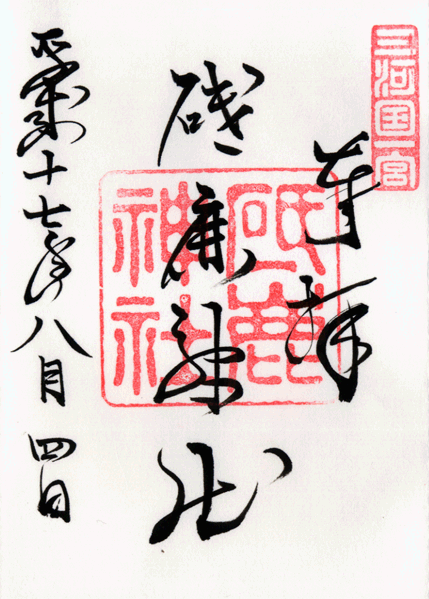 三河国一宮
奉拝
砥鹿神社
砥鹿神社
平成十七年八月四日